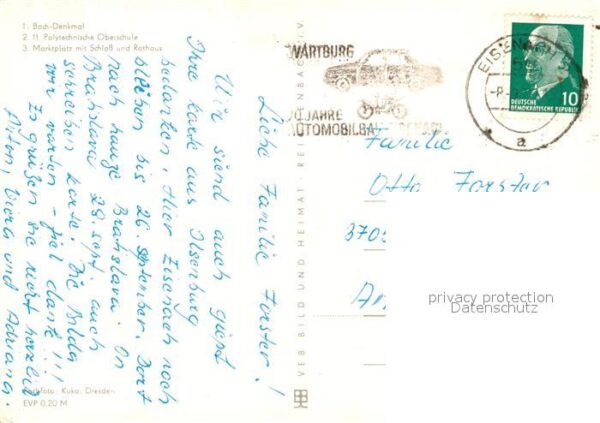 1. Bach-Denkmal
2. 11. Polytechnische Oberschule
3. Marktplatz mit Schloß und Rathaus
Liebe Familie Forster!
Wir siend auch
Ihre karte aus Ilsenburg
bedanken. Hier Eisenach noch
bleiben bis 26. september. Dort
nach hauze Bratislava. On
Bratislava 28. sept. auch
schreiben karte. Die Bilder
wir warten - fiel dank !!!
Es grüßen sie recht herzlich
Anton, Viera und Adriana.
Kuka, Dresden
EVP 0,20 M
VEB BILD UND HEIMAT · REICHENBACH I. V.
WARTBURG
70 JAHRE
AUTOMOBILBAU EISENACH
EISENACH
a
10
DEUTSCHE
DEMOKRATISCHE REPUBLIK
Familie
Otto Forster
370
privacy protection
Datenschutz